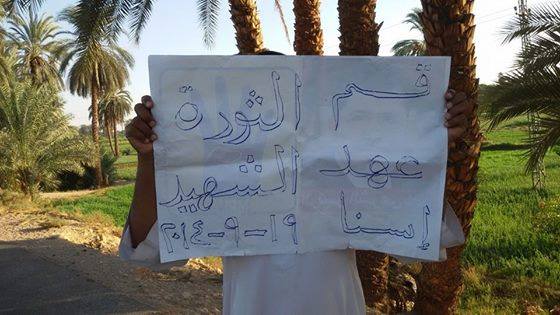 قسم الثورة
عهد الشهيد
إسنا ١٩-٩-٢٠١٤